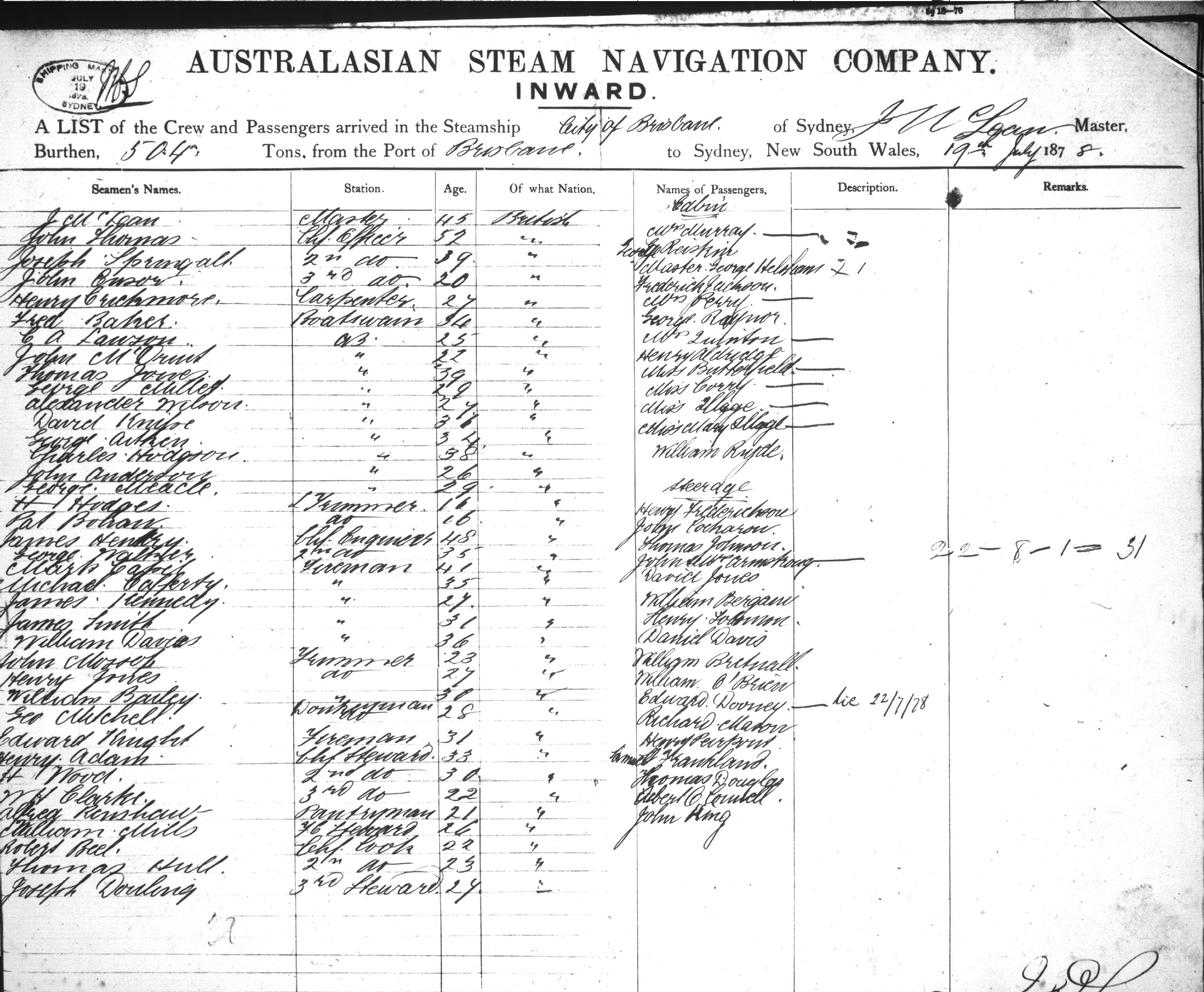 SHIPPING MA
JULY
19
1878
SYDNEY
AUSTRALASIAN STEAM NAVIGATION COMPANY.
INWARD.
A LIST of the Crew and Passengers arrived in the Steamship City of Brisbane. of Sydney, J McLean Master,
Burthen, 504 Tons, from the Port of Brisbane. to Sydney, New South Wales, 19th July 1878.
Seamen's Names. Station. Age. Of what Nation, Names of Passengers, Description. Remarks.
Cabin
J McLean Master 45 British
John Thomas Chf Officer 52 " Mrs Murray
Joseph Springall 2nd do 39 "
John Ensor 3rd do 20 " Master George 1
Henry Carpenter 27 " Frederick Jackson
Fred Baker. Boatswain 34 " Mrs Perry
C A Lawson AB 25 " George Raynor.
John 22 " Mrs Quinton
Thomas Jones " 39 " Henry Aldridge
George " 29 " Miss Butterfield
Alexander Wilson " 27 " Miss Corry
David " " Miss Illige
George Aitken " 34 " Miss Mary Illige
Charles Hodgson " 38 " William
John Anderson " 26 "
George " 29 " Steerage
H Hodges Trimmer 16 " Henry Frederickson
Pat Bohan do 16 " John
James Henry Chf Engineer 48 " Thomas Johnson
George 2nd do 35 " John & Mrs Armstrong 22-8-1 = 31
Mark Fireman 41 " David Jones
Michael Cafferty. " 35 "
James Kennedy. " 27 " William
James Smith " 31 " Henry Solomon
William Davies " 36 " Daniel Davis
John Mossop Trimmer 23 " William Bretnall
Henry Jones do 27 " William O'Brien
William Bailey " 30 " Edward Dooney 22/7/78
Geo Mitchell Donkeyman 28 " Richard Mason
Edward Knight Fireman 31 " Henry
Henry Adam Chf Steward 33 " Frankland.
H Wood. 2nd do 30 " Thomas Douglas
Clarke. 3rd do 22 "
Alfred Renshaw Pantryman 21 " John King
William Mills Steward 26 "
Robert Bell. Chf Cook 22 "
Thomas Hull. 2nd do 23 "
Joseph Dowling 3rd Steward. 24 "